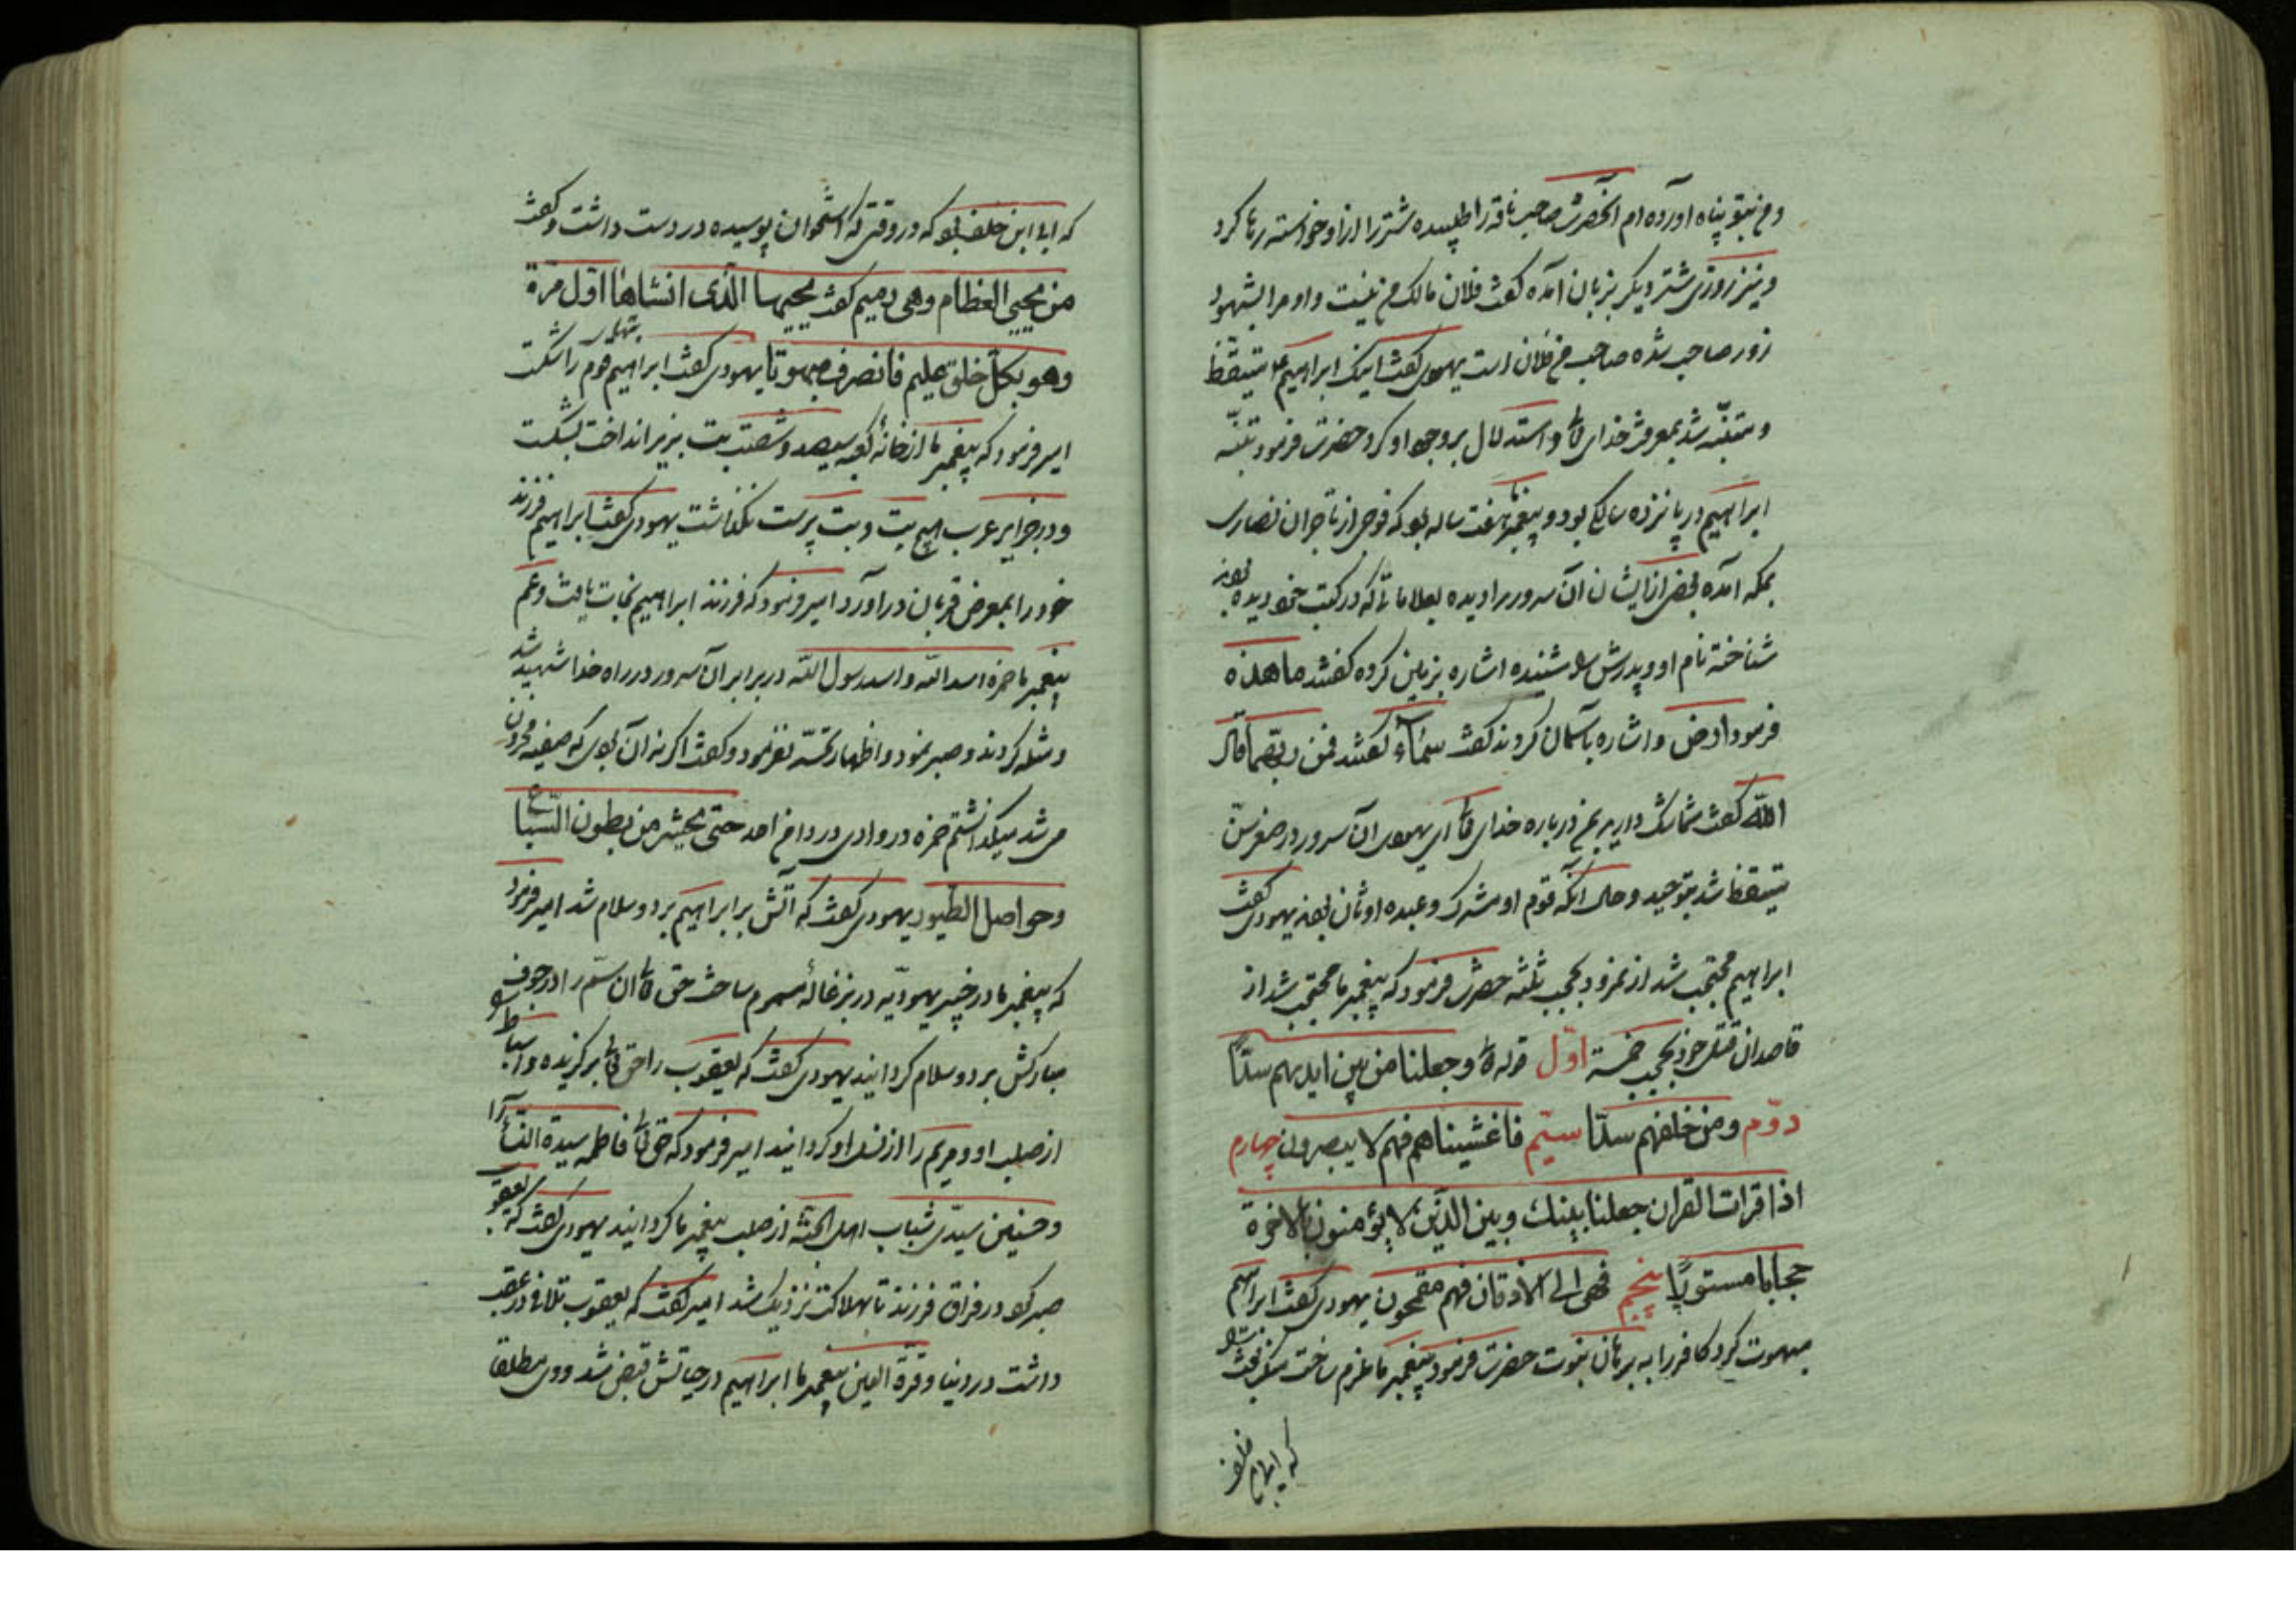 و من بتو پناه آورده ام آنحضرت صاحب ناقه را طلبیده شتر را از او خواسته رها کرد
و نیز روزی شتر دیگر بزبان آمده گفت فلان مالک من نیست و او مرا بشهود
زور صاحب شده صاحب من فلان است یهودی گفت اینک ابراهیم متیقظ
و متنبّه شد بمعرفت خدای تعالی و استدلال بر وجود او کرد حضرت فرمود تنبّه
ابراهیم در پانزده سالگی بود و پیغمبر ما هفت ساله بود که فوجی از تاجران نصاری
بمکه آمده بعضی از ایشان آن سرور را دیده بعلاماتی که در کتب خود دیده بودند
شناخته نام او و پدرش را شنیده اشاره بزمین کرده گفتند ما هذه
فرمود ارض و اشاره بآسمان کردند گفت سماء گفتند فمن ربّهما قال
الله گفت شما شک دارید در باره خدای تعالی ای یهودی آن سرور در صغر سن
متیقظ شد بتوحید و حال آنکه قوم او مشرک و عبده اوثان بودند یهودی گفت
ابراهیم محتجب شد از نمرود بحجب ثلثه حضرت فرمود که پیغمبر ما محتجب شد از
قاصدان قتل خود بحجب خمسة اوّل قوله تعالی وجعلنا من بین ایدیهم سدّا
دوّم ومن خلفهم سدّا سیّم فاغشیناهم فهم لا یبصرون چهارم
اذا قرات القران جعلنا بینك وبین الذّین لا یؤمنون بالاخرة
حجابا مستورًا پنجم فهی الی الاذقان فهم مقمحون یهودی گفت ابراهیم
مبهوت کرد کافر را به برهان نبوت حضرت فرمود پیغمبر ما ملزم ساخت منکر بعث را
که ابی ابن خلف
که ابی ابن خلف بود که در وقتی که استخوان پوسیده در دست داشت و گفت
من یحیی العظام وهی رمیم گفت یحییها الذی انشاها اول مرة
وهو بکلّ خلق علیم فانصرف مبهوتا یهودی گفت ابراهیم بتهای قوم را شکست
امیر فرمود که پیغمبر ما از خانهٔ کعبه سیصد و شصت بت بزیر انداخت بشکست
و در جزایر عرب هیچ بت و بت پرست نگذاشت یهودی گفت ابراهیم فرزند
خود را بمعرض قربان درآورد امیر فرمود که فرزند ابراهیم نجات یافت و عم
پیغمبر ما حمزه اسد الله و اسد رسول الله در برابر آن سرور در راه خدا شهید شد
و مثله کردند و صبر نمود و اظهار نفرمود و گفت اگر نه آن بودی که صفیه محزون
می شد میگذاشتم حمزه در وادی احد حتی یحشر من بطون السّباع
وحواصل الطیور یهودی گفت که آتش بر ابراهیم برد و سلام شد امیر فرمود
که پیغمبر ما در خیبر یهودیّه در بزغاله مسموم ساخت حق تعالی آن سمّ را در جوف
مبارکش برد و سلام گردانید یهودی گفت که یعقوب را حق تعالی برگزیده و اسباط را
از صلب او و مریم را از نسل او گردانید امیر فرمود که حق تعالی فاطمه سیدة النساء را
و حسنین سیّدی شباب اهل الجنّه از صلب پیغمبر ما گردانید یهودی گفت که یعقوب
صبر کرد در فراق فرزند تا بهلاکت نزدیک شد امیر گفت که یعقوب تلاقی در عقب
داشت در دنیا و قرّة العین پیغمبر ما ابراهیم در حیاتش قبض شد و وی مطلقا